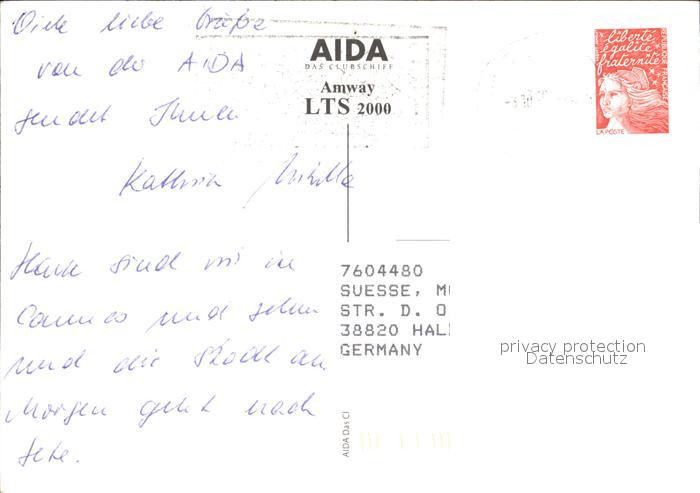 Viele liebe Grüße
von der AIDA
sendet Ihnen
Kathrin
Heute sind wir in
Cannes und sehen
und die Stadt an.
Morgen geht nach
Sete.
AIDA
DAS CLUBSCHIFF
Amway
LTS 2000
liberté
égalité
fraternité
RÉPUBLIQUE FRANÇAISE
LA POSTE
7604480
SUESSE, M
STR. D. O
38820 HAL
GERMANY
privacy protection
Datenschutz
AIDA Das Cl